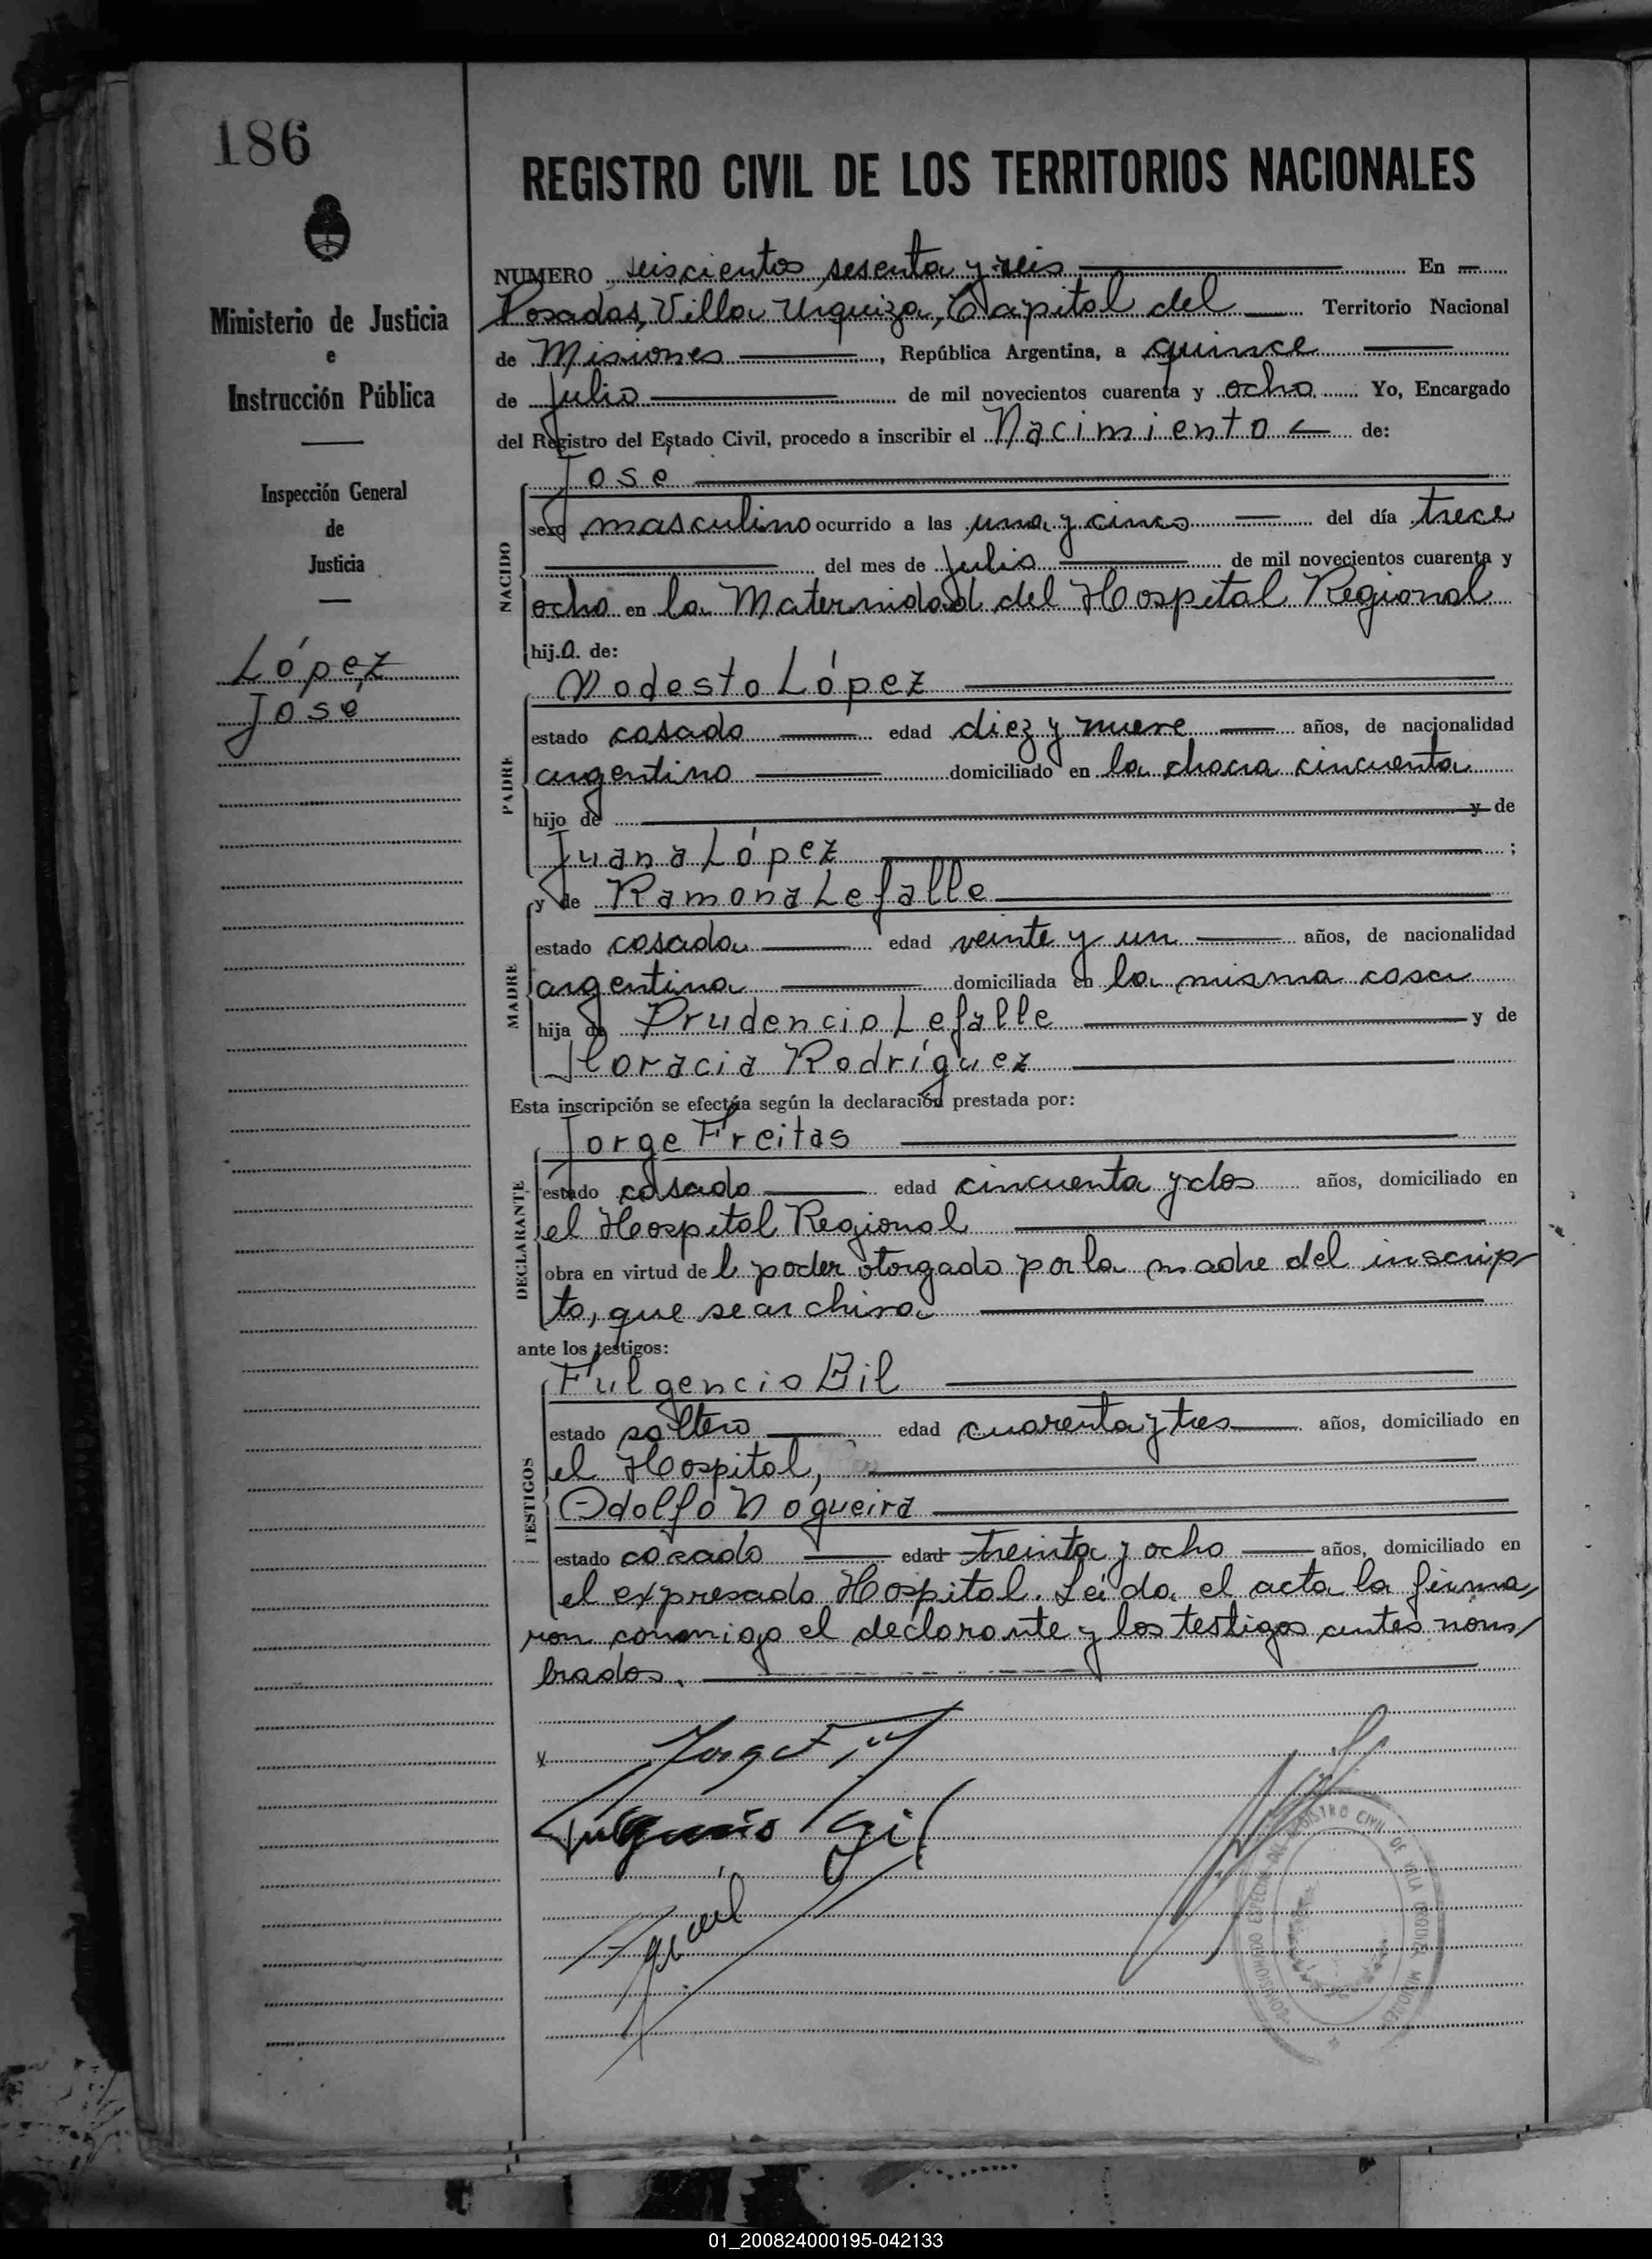 186
REGISTRO CIVIL DE LOS TERRITORIOS NACIONALES
Ministerio de Justicia
e
Instrucción Pública
Inspección General
de
Justicia
López
José
NUMERO seiscientos sesenta y seis En
Posadas, Villa Urquiza, Capital del Territorio Nacional
de Misiones, República Argentina, a quince
de Julio de mil novecientos cuarenta y ocho Yo, Encargado
del Registro del Estado Civil, procedo a inscribir el Nacimiento de:
NACIDO
Jose
sexo masculino ocurrido a las una y cinco del día trece
del mes de Julio de mil novecientos cuarenta y
ocho en la Maternidad del Hospital Regional
hijo de:
PADRE
Modesto López
estado casado edad diez y nueve años, de nacionalidad
argentino domiciliado en la chacra cincuenta
hijo de y de
Juana López ;
MADRE
y de Ramona Lefalle
estado casada edad veinte y un años, de nacionalidad
argentina domiciliada en la misma casa
hija de Prudencio Lefalle y de
Horacia Rodríguez
Esta inscripción se efectúa según la declaración prestada por:
DECLARANTE
Jorge Freitas
estado casado edad cincuenta y dos años, domiciliado en
el Hospital Regional
obra en virtud del poder otorgado por la madre del inscrip
to, que se archiva
ante los testigos:
TESTIGOS
Fulgencio Gil
estado soltero edad cuarenta y tres años, domiciliado en
el Hospital,
Adolfo Nogueira
estado casado edad treinta y ocho años, domiciliado en
el expresado Hospital. Leída el acta la firma
ron conmigo el declarante y los testigos antes nom
brados.
Fulgencio Gil
COMISIONADO ESPECIAL DEL REGISTRO CIVIL DE VILLA URQUIZA MISIONES
01_200824000195-042133